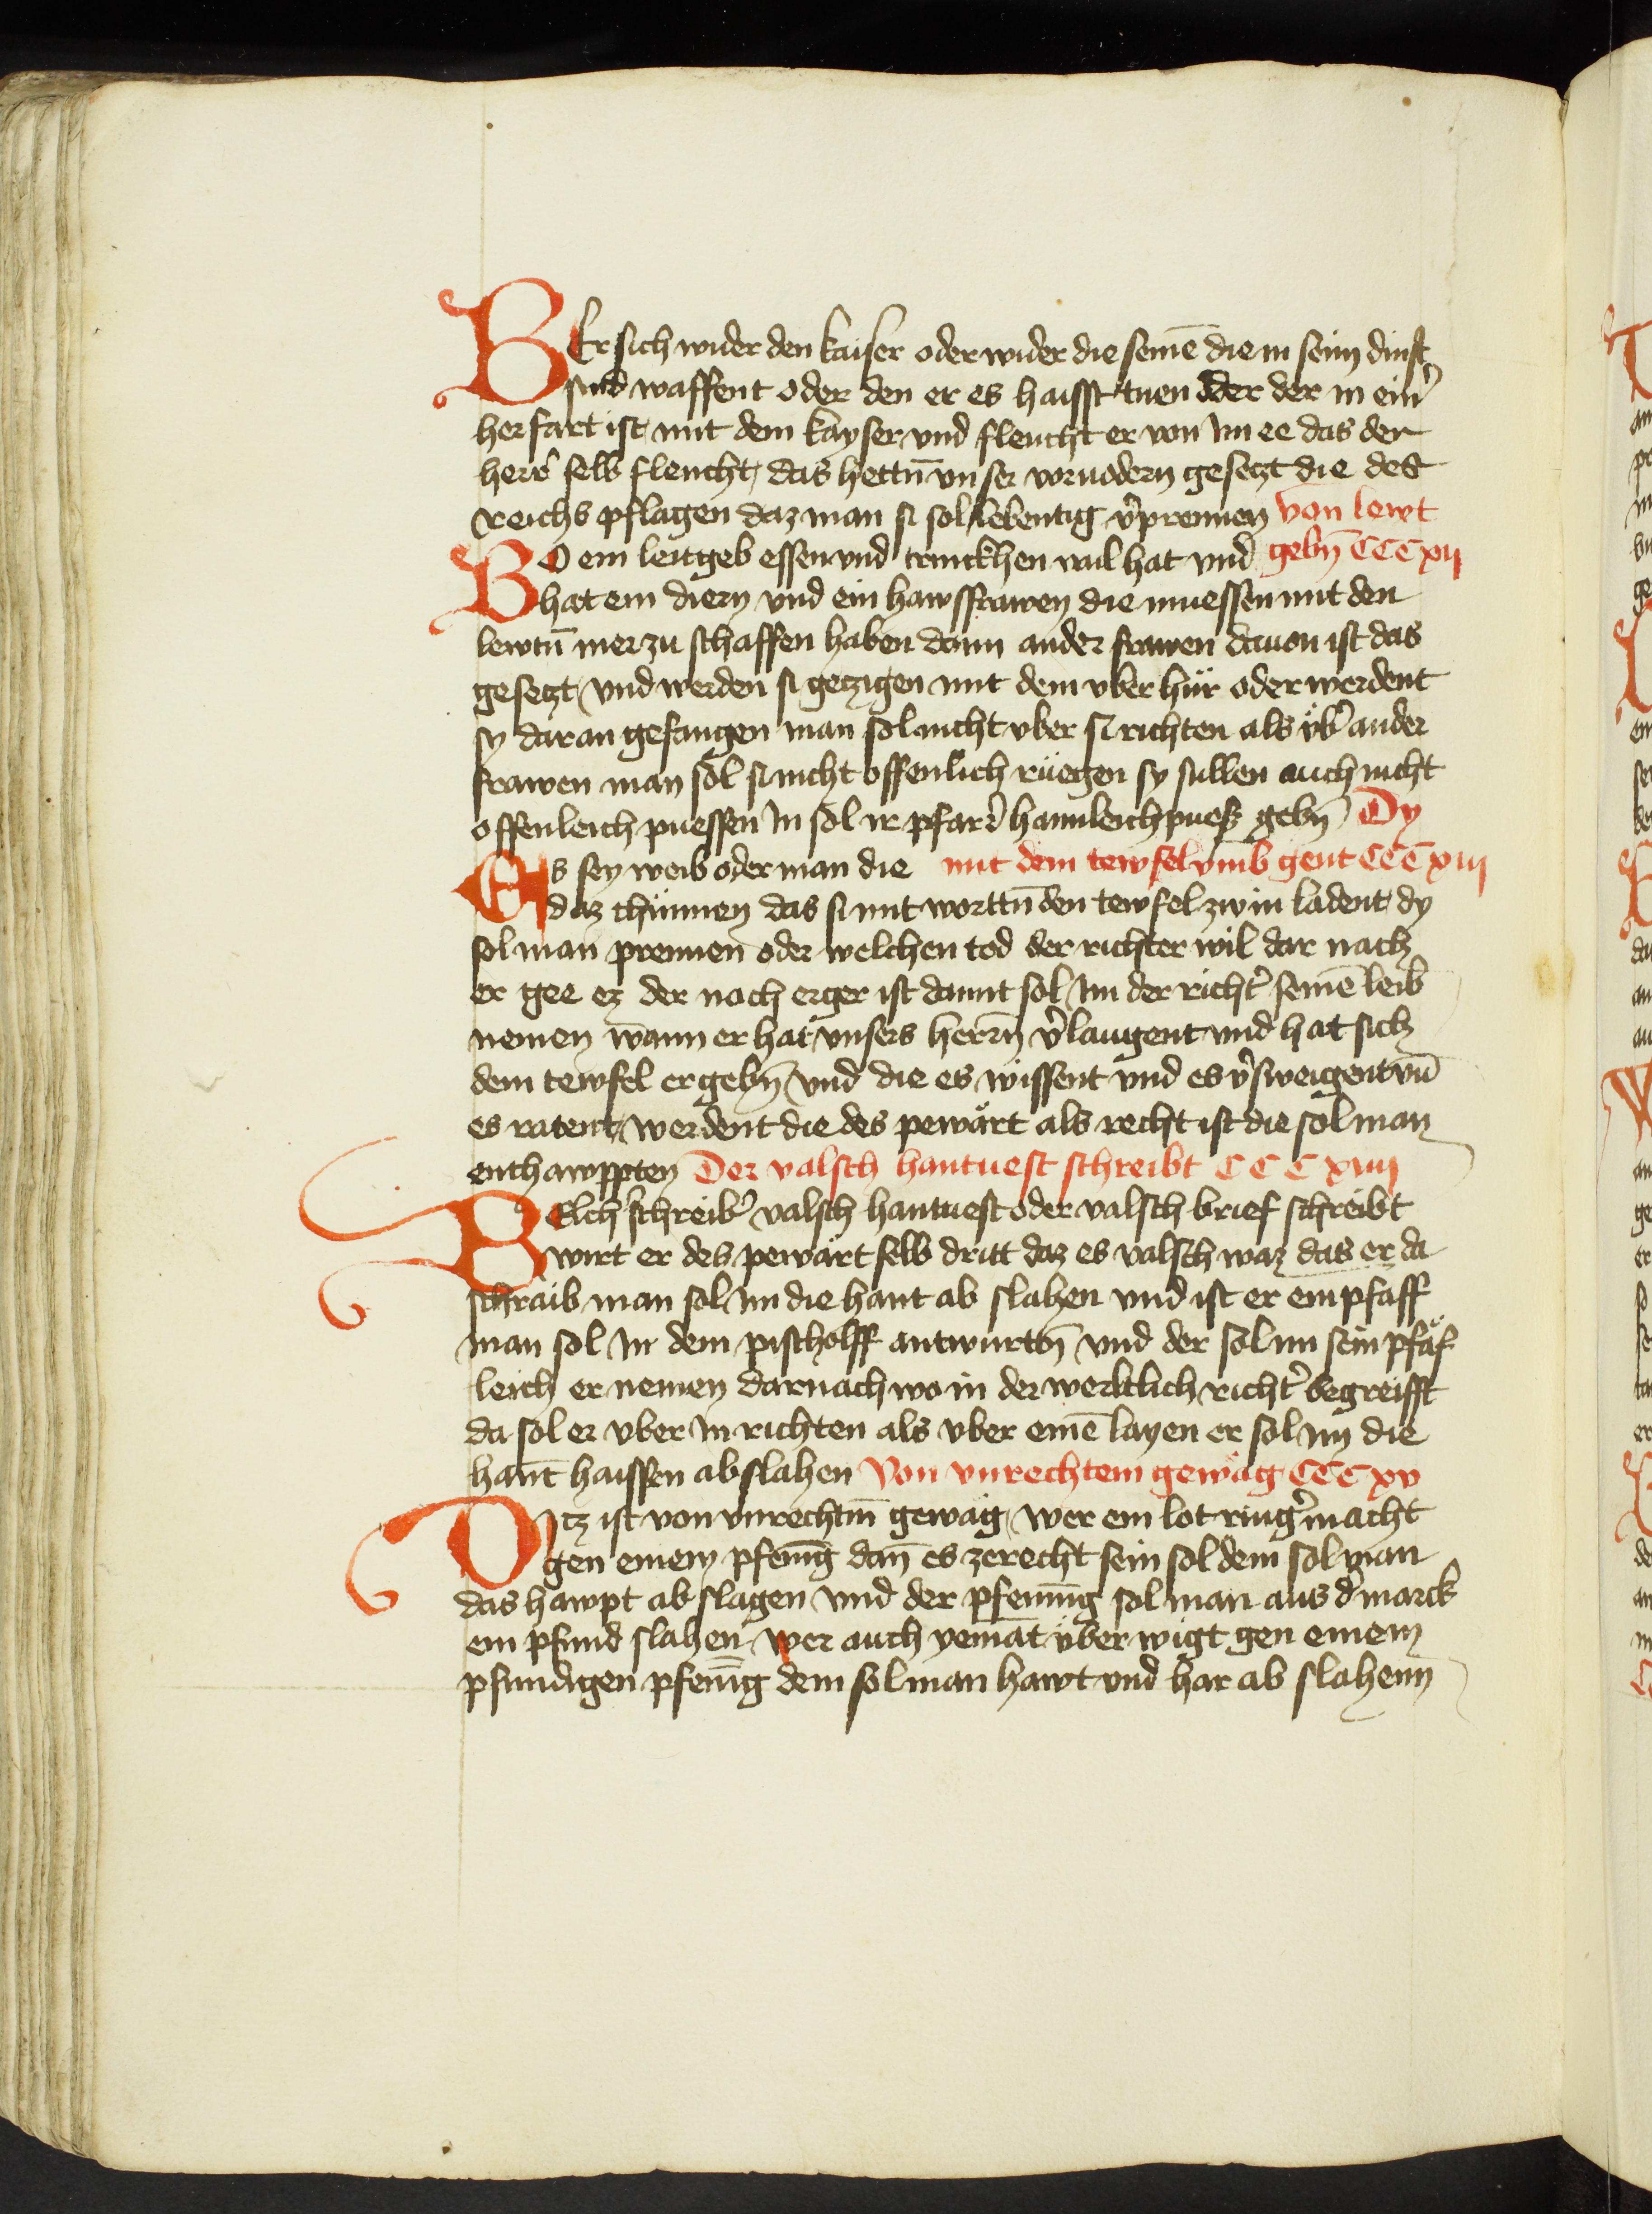 WEr sich wider den kaiser oder wider die seinē die in seim dinst
sind waffent oder den er es haisst tuen oder der in ein̾
herfart ist mit dem kayser vnd fleucht er von im ee das der
herr̾ selb fleucht, das hettn̄ vnser voruodern gesetzt die des
reichs pflagen daz man si sol lebentig v̾prennen von lewt
WO ein leitgeb essen vnd trinckhen vail hat vnd gebn̄ CCC xij
hat ein diern vnd ein hawsfrawen die muessen mit den
lewtn̄ mer zu schaffen haben dann ander frawen dauon ist das
gesetzt vnd werden si getzigen mit dem vber hür oder werdent
sy daran gefangen man sol nicht vber si richten als vb̾ ander
frawen man sol si nicht offenlich rüegen sy sullen auch nicht
offenleich puessen In sol ir pfar̾ hamleich puess gebn̄ Dy
ES sey weib oder man die mit dem tewfel vmb gent CCC xiij
daz chünnen das si mit worttn̄ den tewfel zw in ladent dy
sol man prennen oder welchen tod der richter wil dar nach
er gee ez der nach erger ist damit sol im der richt̾ seinē leib
nemen wann er hat vnsers herrn̄ v̾laugent vnd hat sich
dem tewfel ergebn̄ vnd die es wissent vnd es v̾sweigent vn̄
es ratent werdent die des pewärt als recht ist die sol man
enthawppten Der valsch hantuest schreibt CCC xiiij
WElch schreib̾ valsch hantuest oder valsch brief schreibt
wirt er des pewärt selb dritt daz es valsch waz das er da
schraib man sol im die hant ab slahen vnd ist er ein pfaff
man sol In dem pischolff antwurtn̄ vnd der sol im sein pfäf
leich er nemen darnach wo in der werltlich richt̾ begreifft
da sol er vber in richten als vber einē layen er sol im die
hant haissen abslahen Von vnrechtem gewäg CCC xv
DItz ist von vnrechtm̄ gewäg, wer ein lot ring̾ macht
gen einem pfenīg dan̄ es zerecht sein sol dem sol man
das hawpt ab slagen vnd der pfenning sol man aus d̾ marck
ein pfund slahen wer auch yemāt über wigt gen einem
pfundigen pfenīg dem sol man hawt vnd har ab slahenn